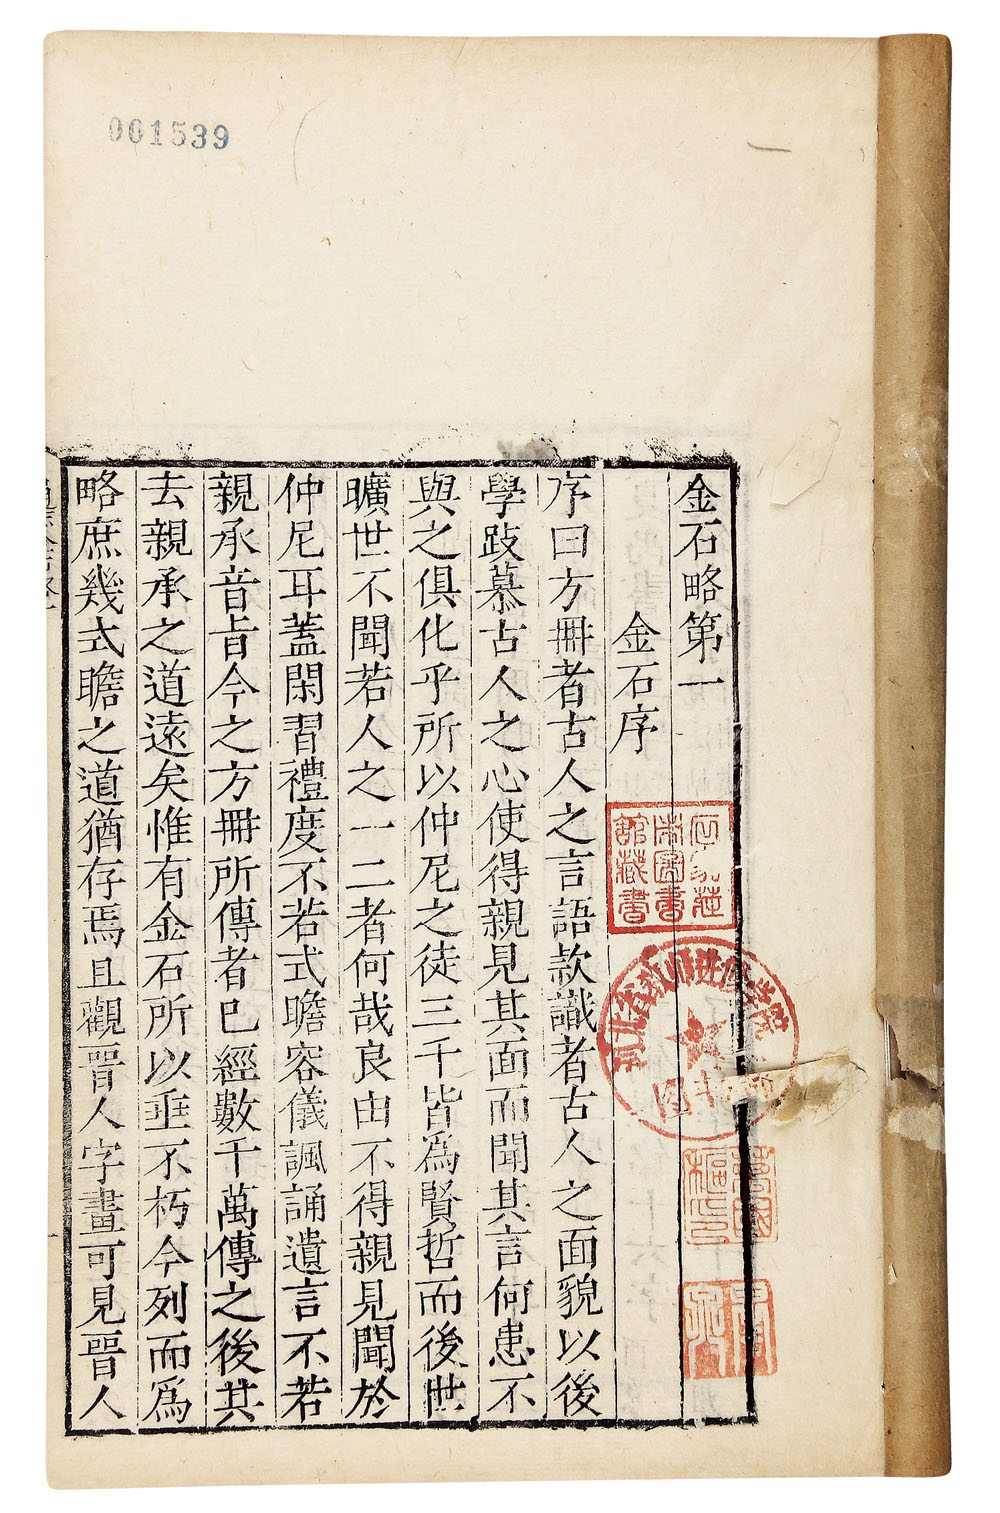 001539
金石略第一
金石序
序曰方冊者古人之言語款識者古人之面貌以後
學跂慕古人之心使得親見其面而聞其言何患不
與之俱化乎所以仲尼之徒三千皆爲賢哲而後世
曠世不聞若人之一二者何哉良由不得親見聞於
仲尼耳蓋閑習禮度不若式瞻容儀諷誦遺言不若
親承音旨今之方冊所傳者已經數千萬傳之後其
去親承之道遠矣惟有金石所以垂不朽今列而爲
略庶幾式瞻之道猶存焉且觀晉人字畫可見晉人
石家莊
市圖書
館藏書
河北省教師進修學院